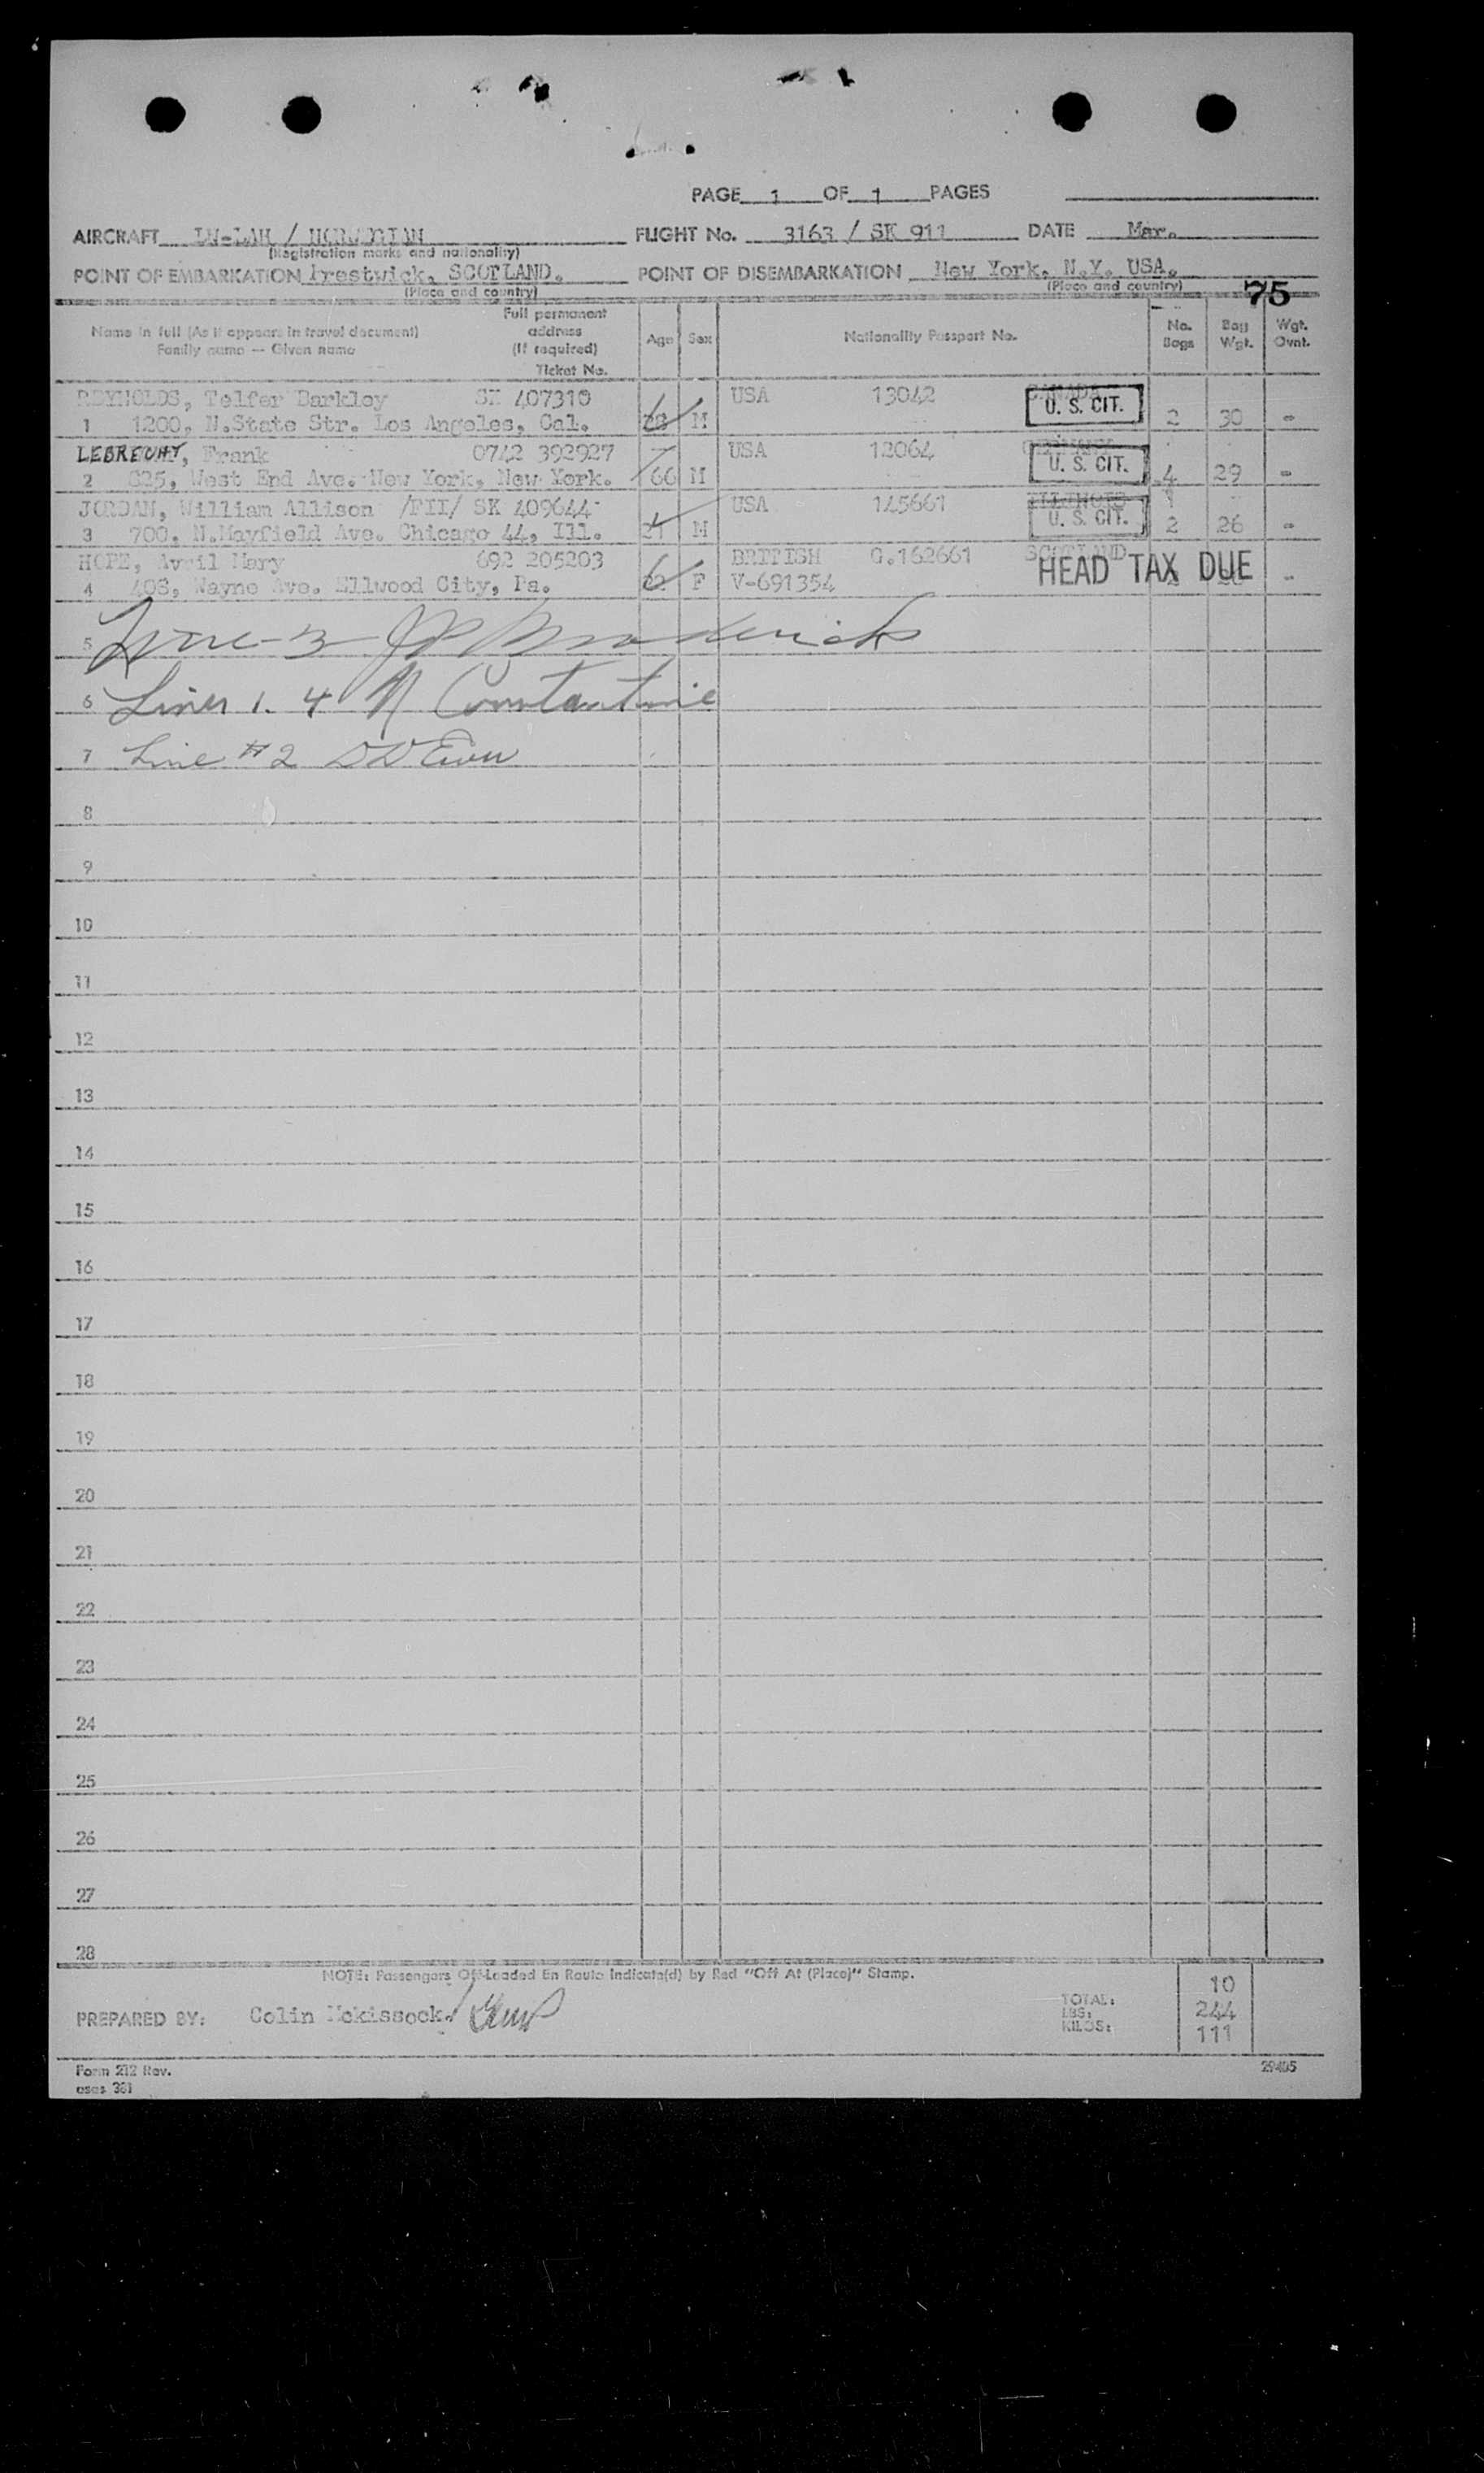 PAGE 1 OF 1 PAGES
AIRCRAFT LN-LAH / NORWEGIAN FLIGHT No. 3163 / SK 911 DATE Mar.
(Registration marks and nationality)
POINT OF EMBARKATION Prestwick, SCOTLAND. POINT OF DISEMBARKATION New York, N.Y. USA.
(Place and country) (Place and country) 75
Name in full (As it appears in travel document)
Family name — Given name
Full permanent address (If required) Ticket No.
Age Sex Nationality Passport No. No. Bags Bag Wgt. Wgt. Ovnt.
REYNOLDS, Telfer Barkley SK 407310 USA 13042 CANADA
1 1200, N.State Str. Los Angeles, Cal. M U. S. CIT. 2 30 -
LEBRECHT, Frank 0742 392927 USA 12064 GERMANY
2 825, West End Ave. New York, New York. 66 M U. S. CIT. 4 29 -
JORDAN, William Allison /FII/ SK 409644 USA 145661 ILLINOIS
3 700, N.Mayfield Ave. Chicago 44, Ill. 21 M U. S. CIT. 2 26 -
HOPE, Avril Mary 692 205203 BRITISH G.162661 SCOTLAND
4 408, Wayne Ave. Ellwood City, Pa. F V-691354 HEAD TAX DUE -
5 Line-3 JP Broderick
6 Lines 1. 4 N Constantine
7 Line #2
8
9
10
11
12
13
14
15
16
17
18
19
20
21
22
23
24
25
26
27
28
NOTE: Passengers Off-Loaded En Route Indicate(d) by Red "Off At (Place)" Stamp.
PREPARED BY: Colin Mckissock/
TOTAL: 10
LBS: 244
KILOS: 111
Form 212 Rev. 29405